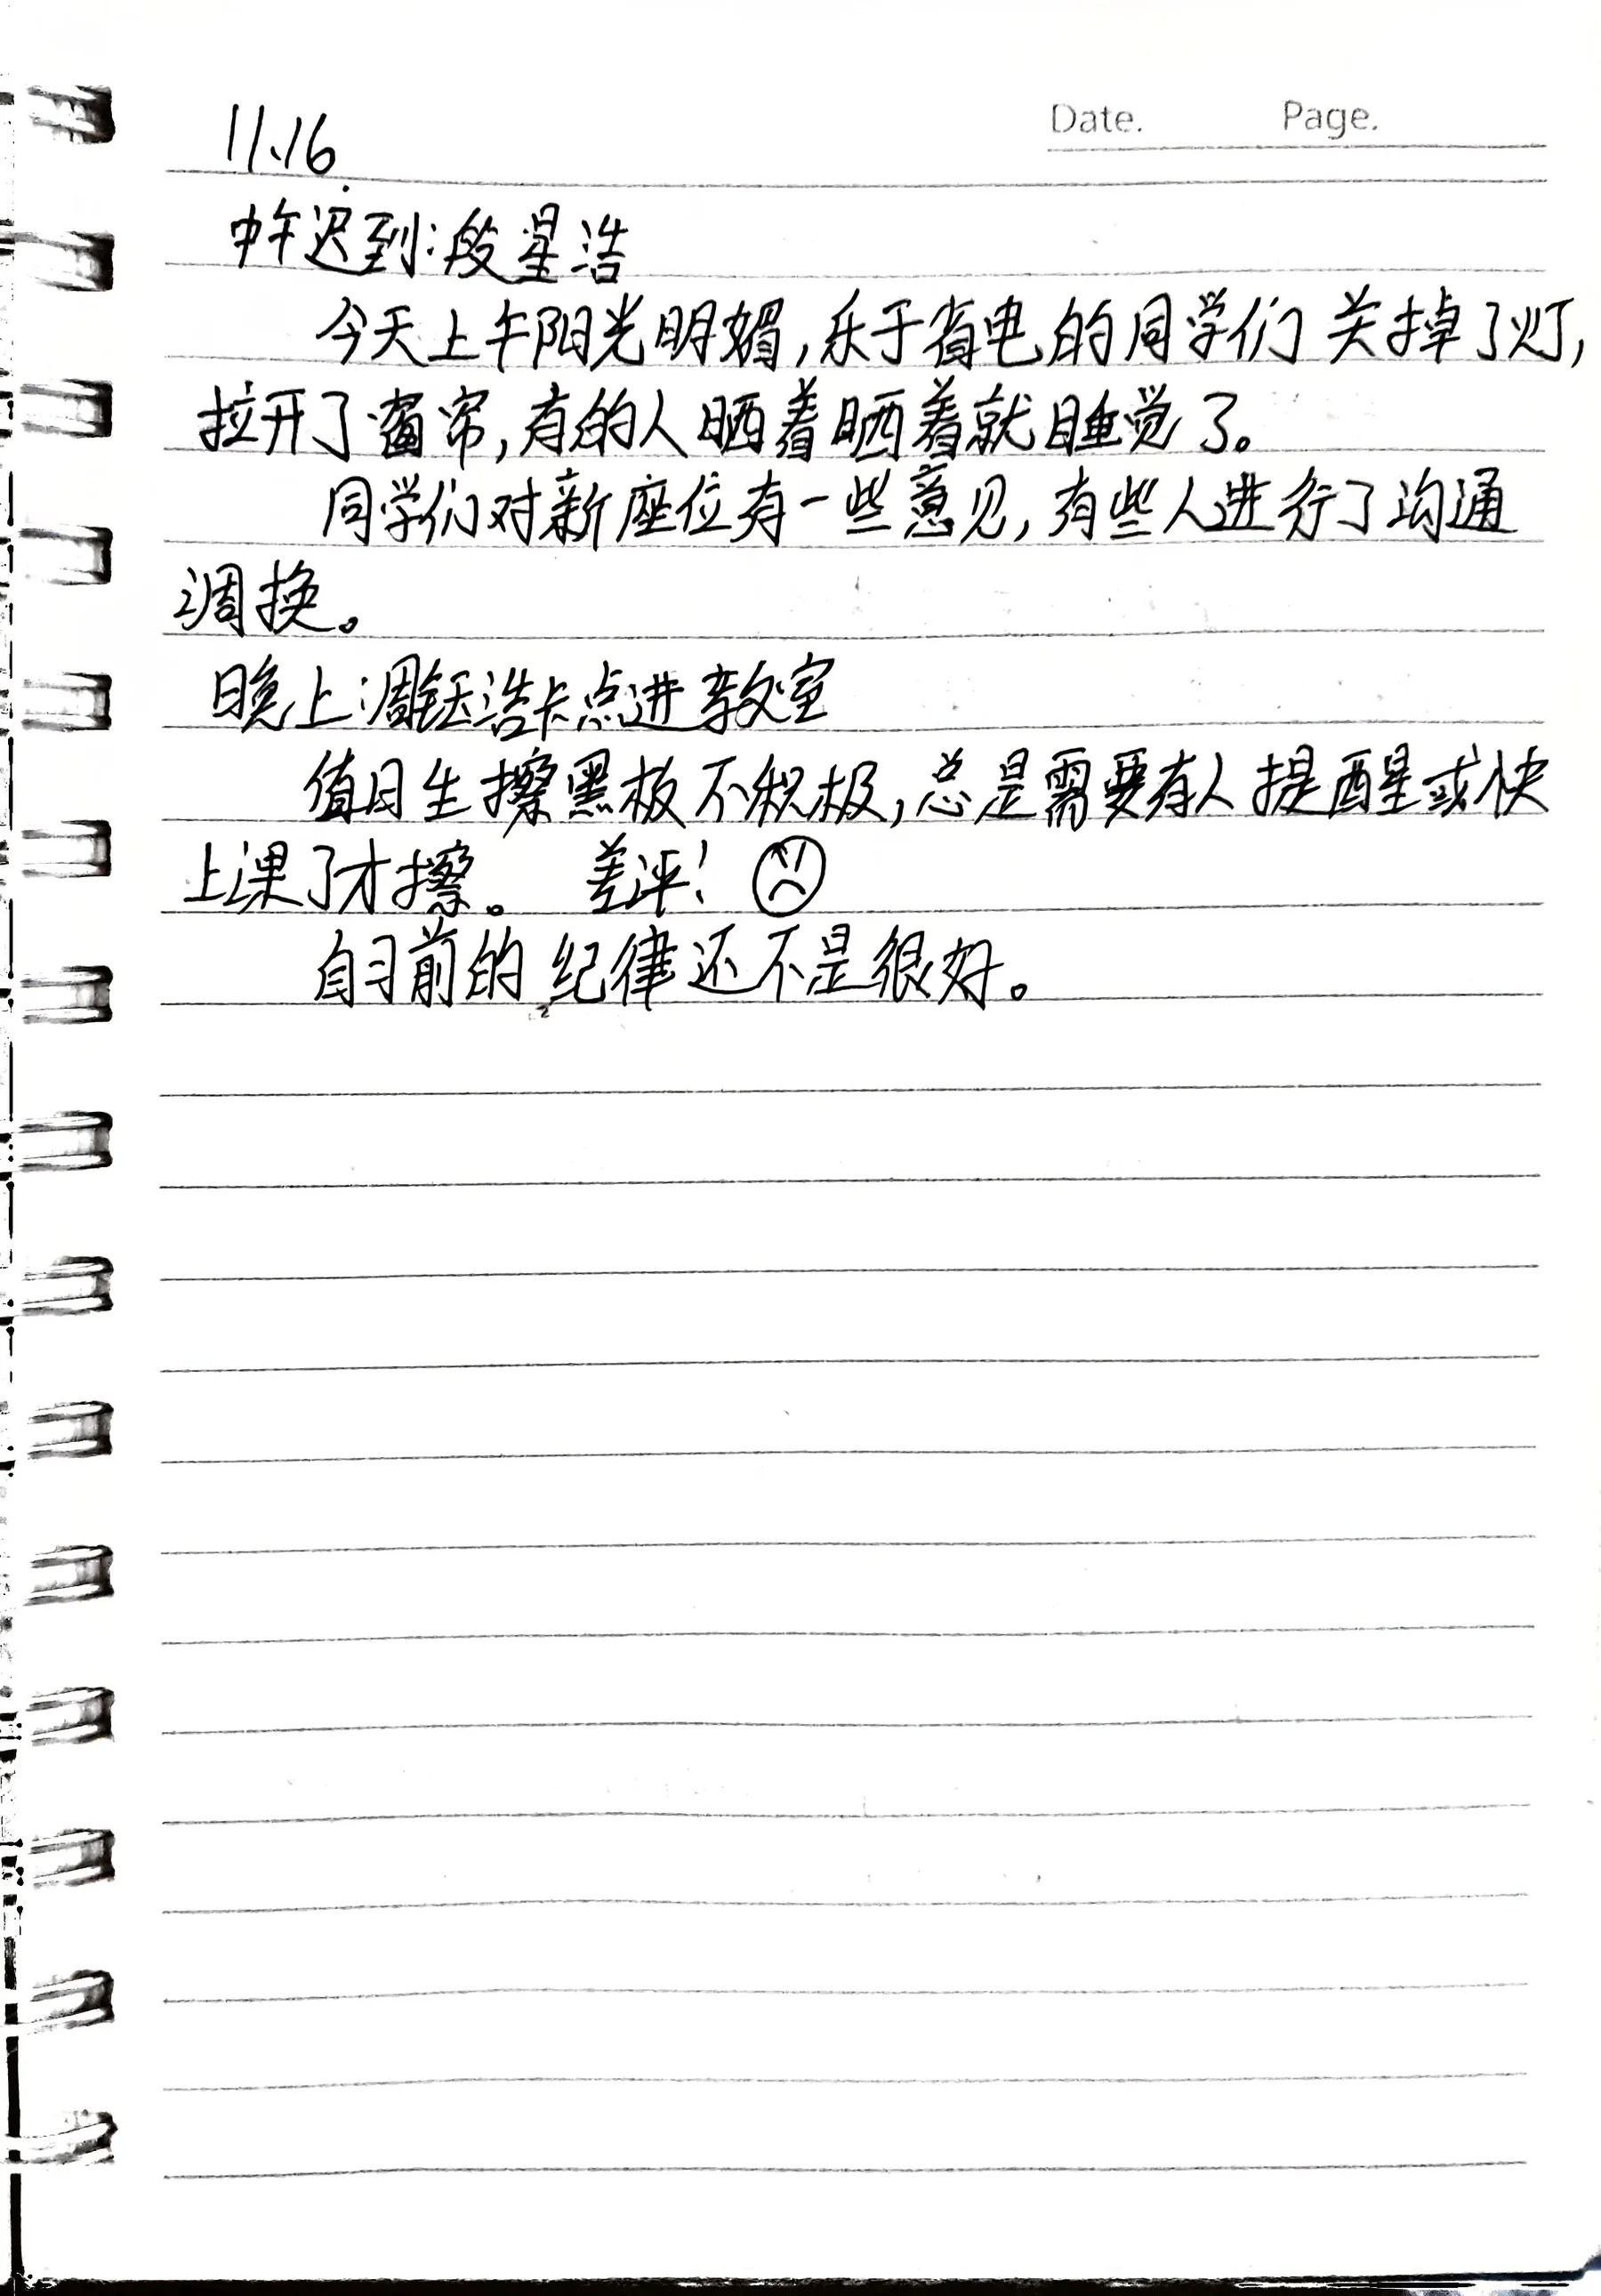 Date. Page.
11.16.
中午迟到:段星浩
今天上午阳光明媚,乐于省电的同学们关掉了灯,
拉开了窗帘,有的人晒着晒着就睡觉了。
同学们对新座位有一些意见,有些人进行了沟通
调换。
晚上:周钰浩卡点进教室
值日生擦黑板不积极,总是需要有人提醒或快
上课了才擦。 差评!
自习前的纪律还不是很好。